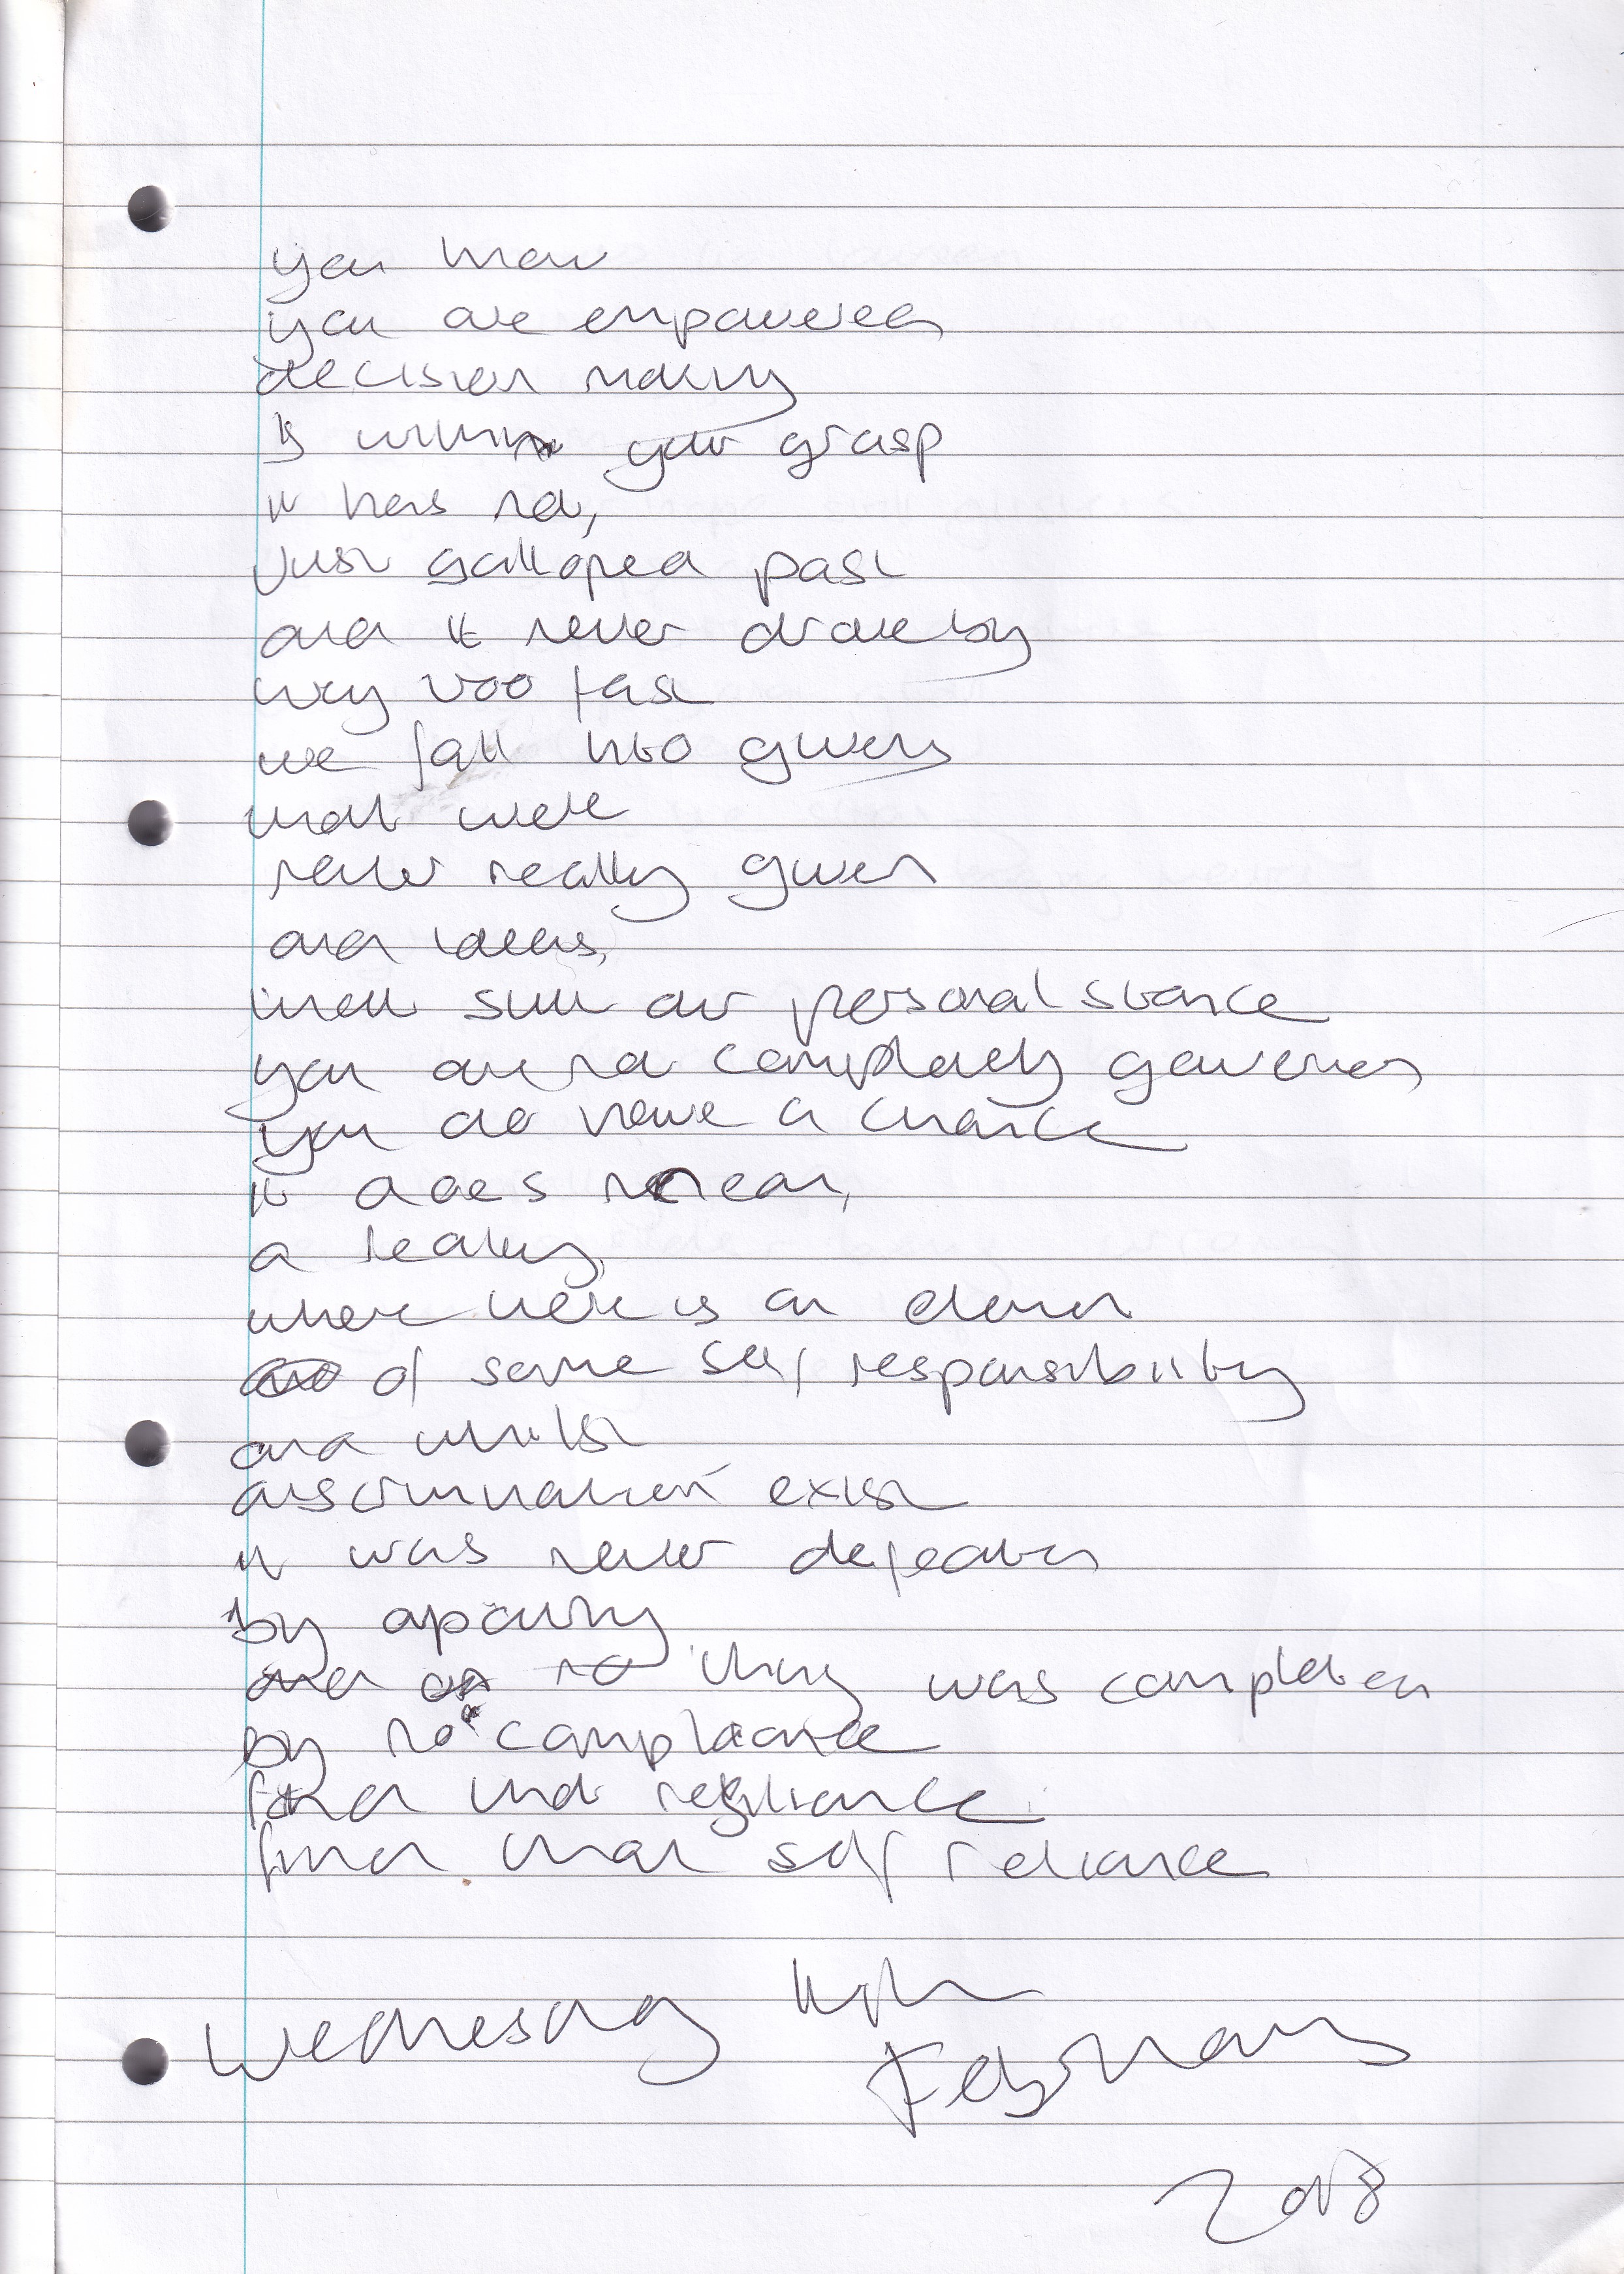 you know
you are empowered
decision making
is within your grasp
it has not,
just galloped past
and it never drove by
way too fast
we fall into givens
that were
never really given
and ideas,
that still our personal stance
you are not completely governed
you do have a chance
it does mean,
a reality
where there is an element
of some self responsibility
and whilst
discrimination exist
it was never defeated
by apathy
and no thing was completed
by no compliance
find that resilience
find that self reliance
Wednesday
February
2018